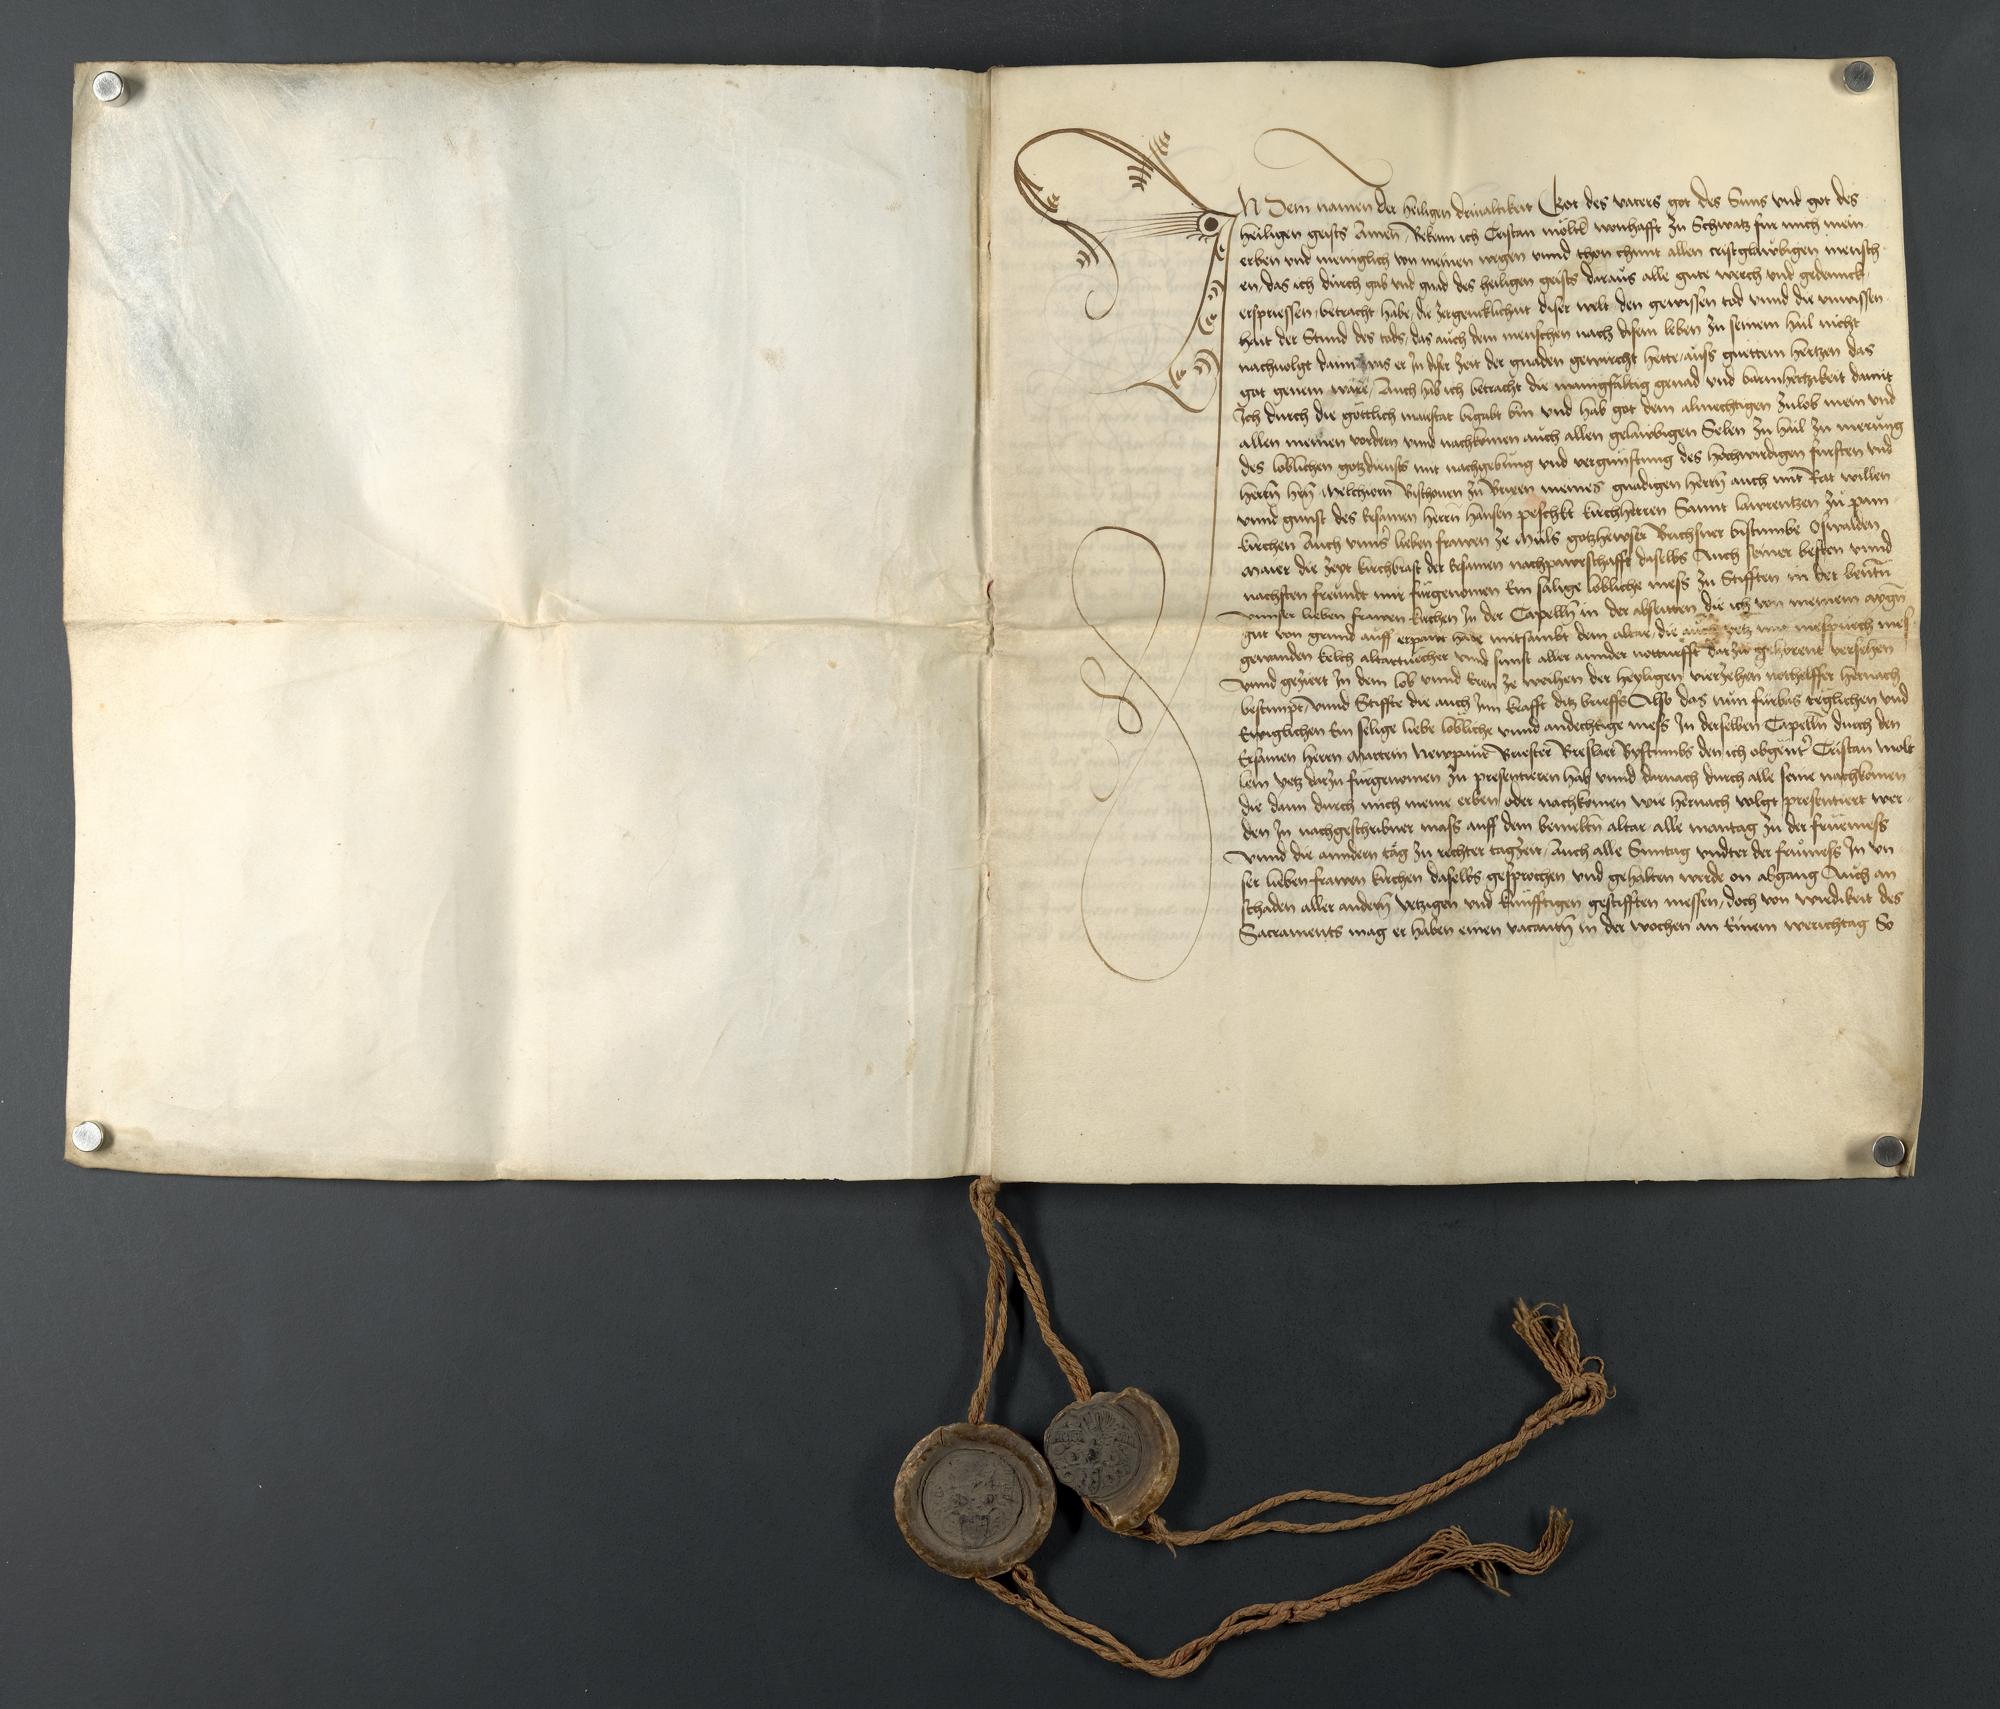 IN Dem namen der heiligen driualtikeit Got des vaters got des Suns vnd got des
heiligen geists Amen Bekenn ich Cristan wonhafft zu Schwatz fur mich mein
erben vnd meniglich von meinen wegen vnnd thon chunt allen cristglaubigen mensch
en, das ich durch gab vnd gnad des heiligen geists daraus alle gute werch vnd gedennck
erspriessen, betracht habe, die zergencklichait diser welt den gewissen tod vnnd die vnwissen
hait der Stund des tods, das auch dem menschen nach disem leben zu seinem hail nicht
nachuolgt dann was er In diser zeit der gnaden gewurcht hette, auss guettem hertzen das
got genem wäre, Auch hab ich betracht die manigfaltig genad vnd barmhertzikeit damit
Ich durch die göttlich maiestat begabt bin vnd hab got dem almechtigen zulob mein vnd
allen meinen vordern vnnd nachkomen auch allen gelaubigen Selen zu hail zu merung
des loblichen gotzdiensts mit nachgebung vnd vergunstung des hochwirdigen fursten vnd
herrn hern Melchiorn Bischouen zu Brixen meines gnadigen herrn auch mit Rat willen
vnnd gunst des ersamen herrn hansen peschkt kirchherren Sannt lawrentzen zu pain
kirchen Auch vnns lieben frawen ze Muls gotzhewser Brichsner bistumbs Oswalden
Maier die zeyt kirchbrast der ersamen nachpawrschafft daselbs Auch seiner besten vnnd
nachsten freundt mir furgenomen Ein salige lobliche mess zu Stifften in der
vnnser lieben frawen kirchen In der Capelln in der abseitten die ich von meinem aygn
gut von grund auff erpawt habe mitsambt dem altar, die auch yetz mit messpuech mess
gewanden kelch altartuecher vnd sunst aller annder notturfft darzu gehorent versehen
vnnd geziert In dem lob vnnd Eren ze weihen der heyligen vierzehen nothelffer hernach
bestimpt, vnnd Stiffte die auch Inn krafft ditz brieffs Also das nun furbas teglichen vnd
Ewiglichen Ein selige liebe lobliche vnnd andechtige mess In derselben Capelln durch den
Ersamen herrn Mattein Newpaur Briester Breslaer Bystumbs den ich obgent Cristan Molt
lein yetz darzu furgenomen zu presentieren hab vnnd darnach durch alle seine nachkomen
die dann durch mich meine erben oder nachkomen wie hernach volgt presentiert wer
den In nachgeschribner mass auff dem bemeltn altar, alle montag zu der fruemess
vnnd die anndern täg zu rechter tagzeit, Auch alle Suntag vndter der fruemess In vn
ser lieben frawen kirchen daselbs gesprochen vnd gehalten werde on abgang Auch an
schaden aller andern yetzigen vnd kunfftigen gestifften messen, doch von wirdikeit des
Sacraments mag er haben einen vacantn in der wochen an Einem werichtag So